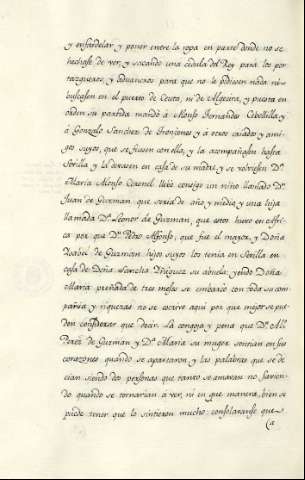 y enfardelar y poner entre la ropa en parte donde no se
hechase de ver, y sacando una cedula del Rey para los por
tazgueros, y aduaneros para que no le pidiesen nada ni
buscasen en el puerto de Ceuta, ni de Algecira, y puesta en
orden su partida mandó à Alonso Fernandez Cebolilla y
à Gonzalo Sanchez de Troncones y à otros criados y ami
gos suyos, que se fuesen con ella, y la acompañasen hasta
Sevilla y la dexasen en casa de su madre, y se volviesen Dª
Maria Alonso Coronel llebó consigo un niño llamado Dⁿ
Juan de Guzman que seria de año y medio, y una hija
llamada Dª Leonor de Guzman, que estos huvo en Affri
ca por que Dⁿ Pedro Alfonso, que fue el mayor, y Doña
Isabel de Guzman hijos suyos los tenia en Sevilla en
casa de Doña Sancha Iñiguez su abuela, yendo Doña
Maria preñada de tres meses se embarcó con toda su com
pañia y riquezas no se escrive aqui por que mejor se pue
den considerar que decir. La congoja y pena que Dⁿ Alº
Perez de Guzman y Dª Maria su muger sentian en sus
corazones quando se apartaron, y las palabras que se de
cian siendo dos personas que tanto se amavan no savien
do quando se tornarian a ver, ni en que manera, bien se
puede tener que lo sintieron mucho consolaranse que
la